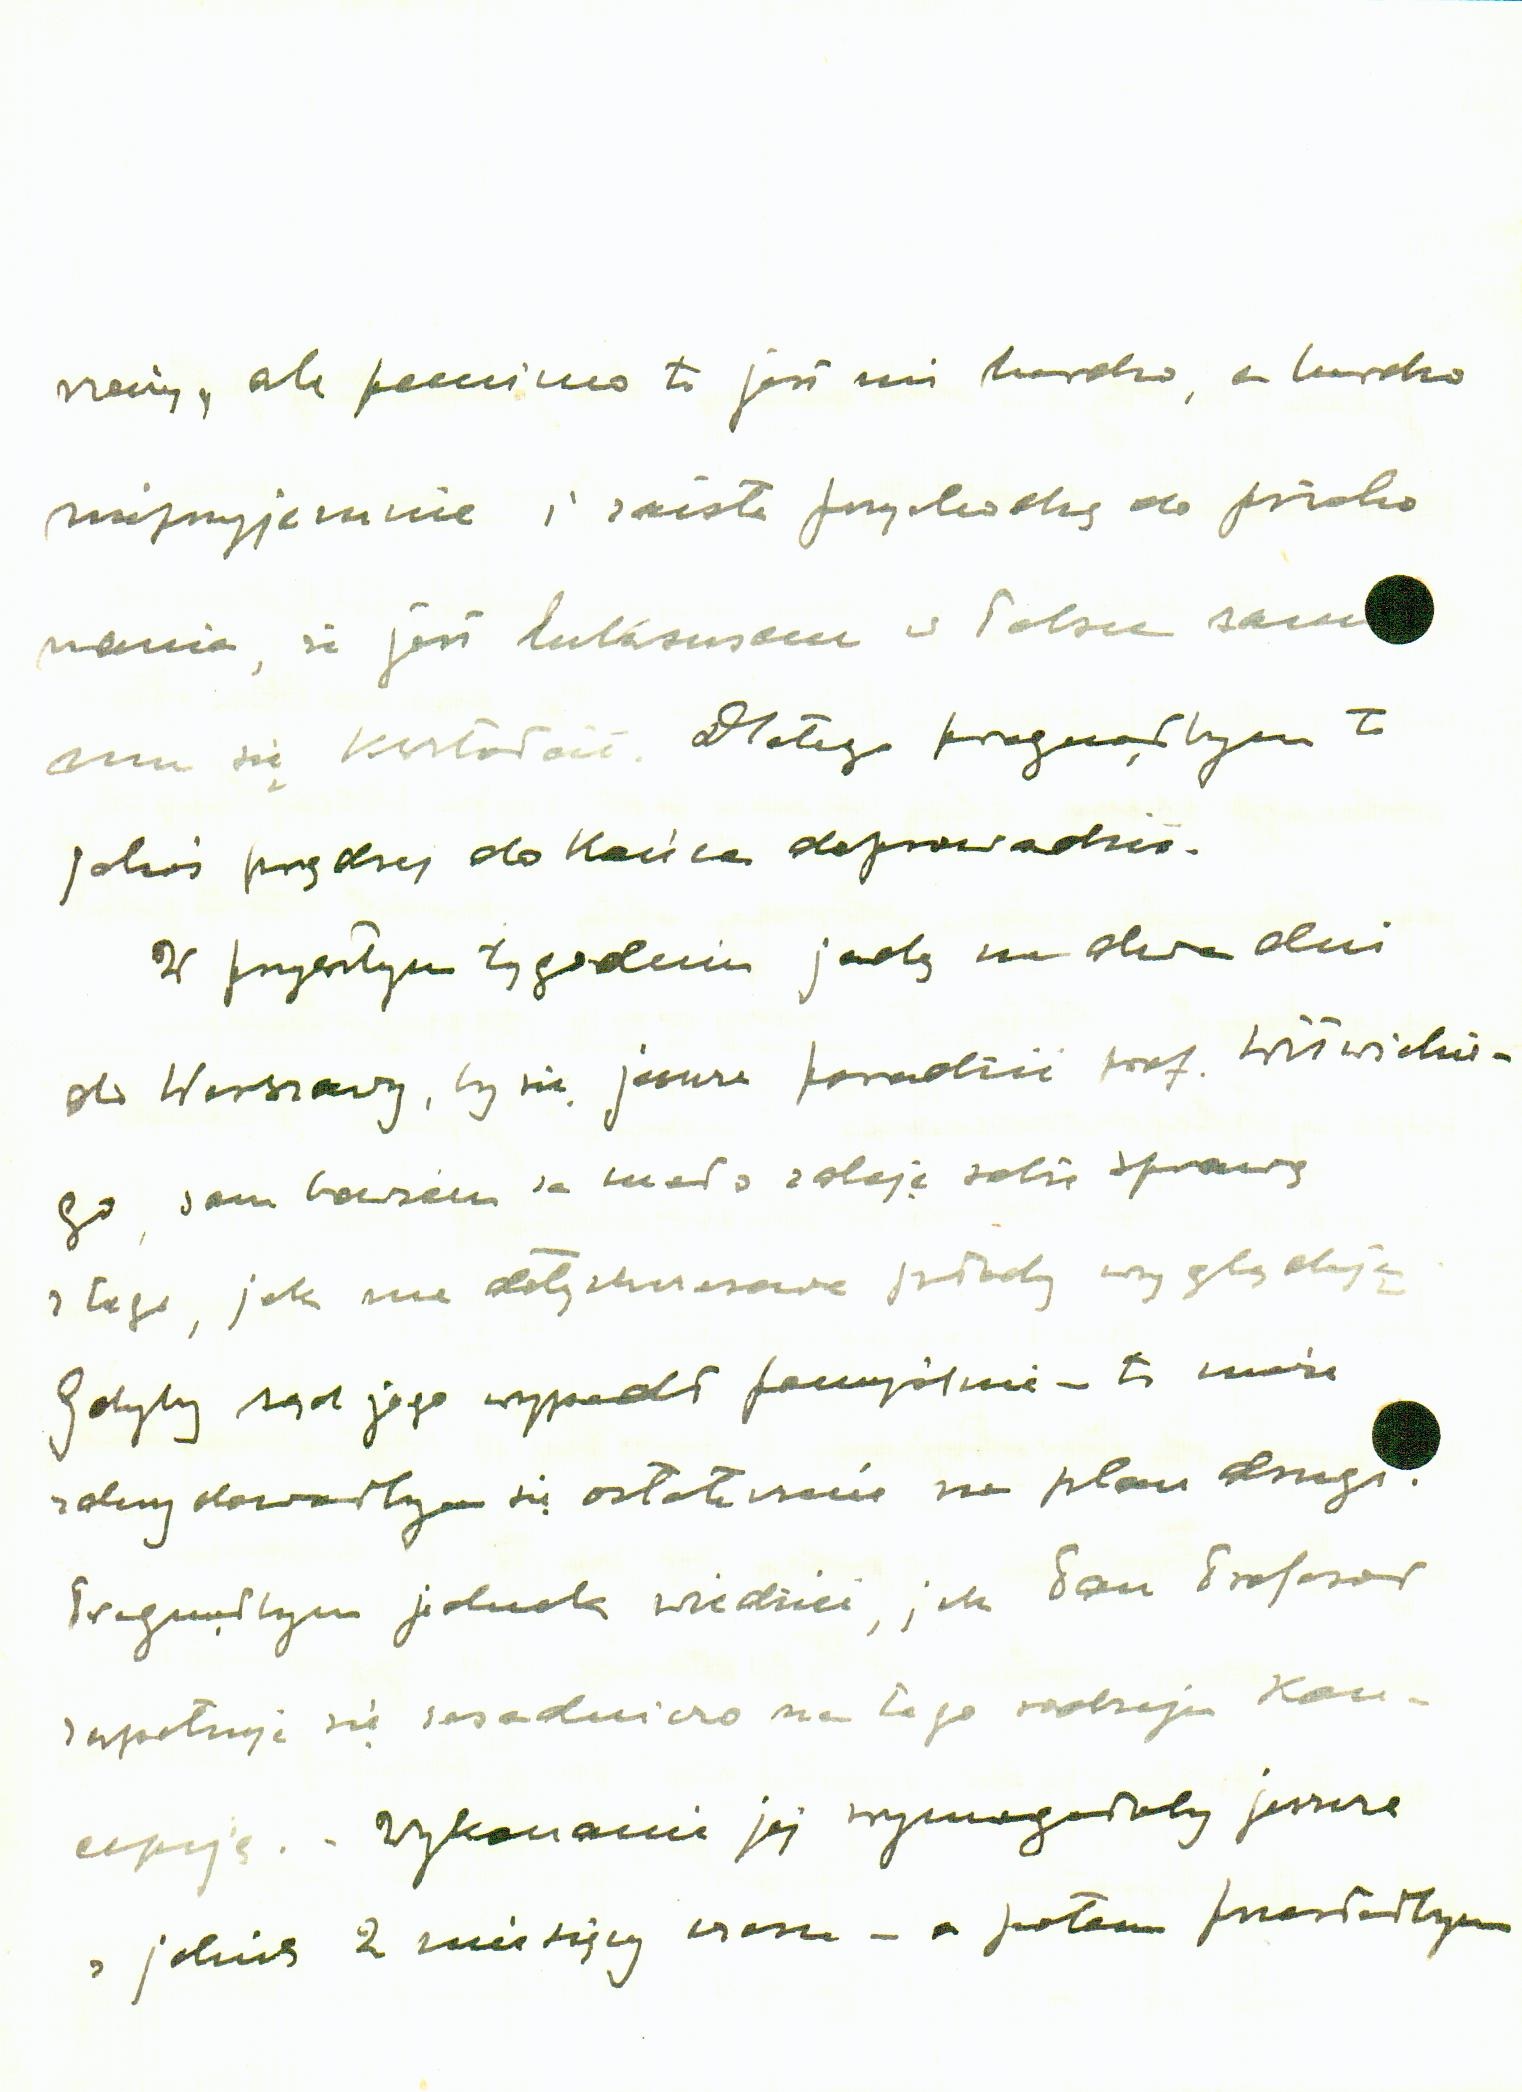 rzeczy, ale pomimo to jest mi bardzo, a bardzo
nieprzyjemnie i zaiste przychodzę do przeko
nania, że jest luksusem w Polsce same
mu się kształcić. Dlatego pragnąłbym to
jakoś prędzej do końca doprowadzić.
W przyszłym tygodniu jadę na dwa dni
do Warszawy, by się jeszcze poradzić prof. Witwickie-
go, sam bowiem za mało zdaję sobie sprawę
z tego, jak me dotychczasowe próby wyglądają.
Gdyby sąd jego wypadł pomyślnie – to może
zdecydowałbym się ostatecznie na plan drugi.
Pragnąłbym jednak wiedzieć, jak Pan Profesor
zapatruje się zasadniczo na tego rodzaju kon-
cepcję. – Wykonanie jej wymagałoby jeszcze
z jakieś 2 miesięcy czasu – a potem przesłałbym